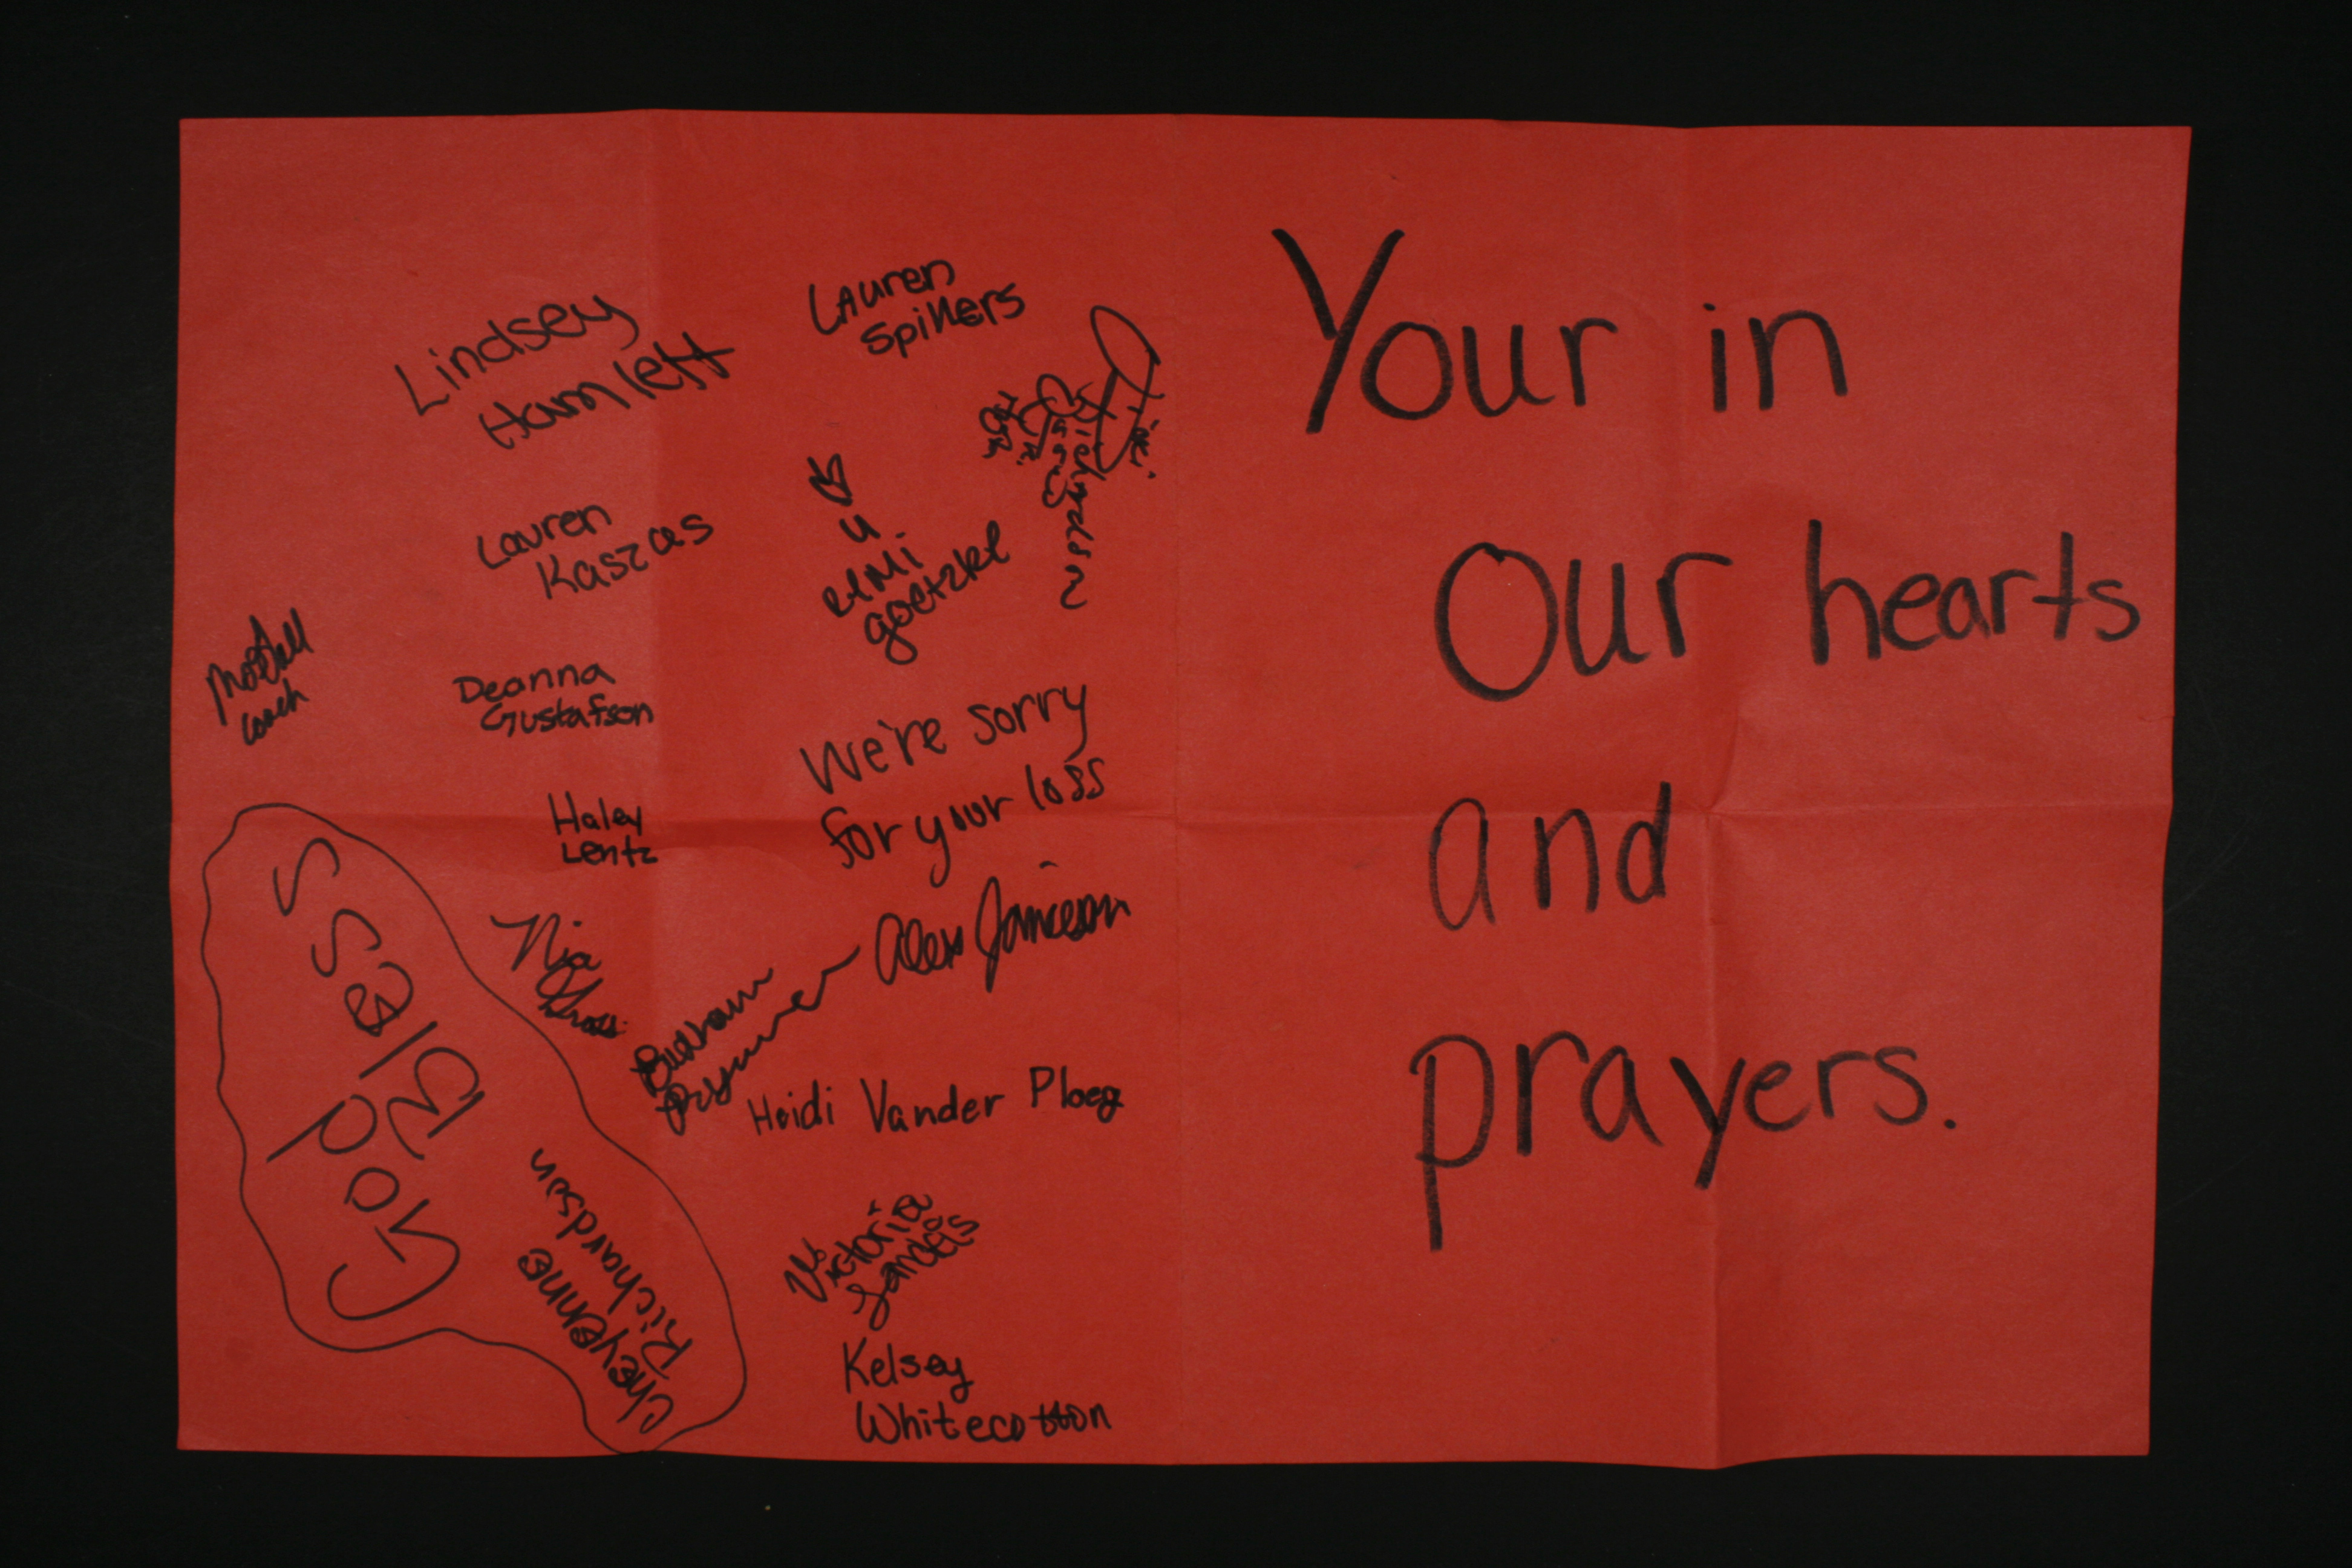 Lindsey
Hamlett
Lauren
Spikers
Lauren
Kaszas
u
goetzke
Deanna
Gustafson
coach
We're sorry
for your loss
Haley
Lentz
Nia
Alex Jamieson
Heidi Vander Ploeg
God
Bless
Cheyenne
Richardson
Victoria
Landeis
Kelsey
Whitecotton
Your in
Our hearts
and
prayers.